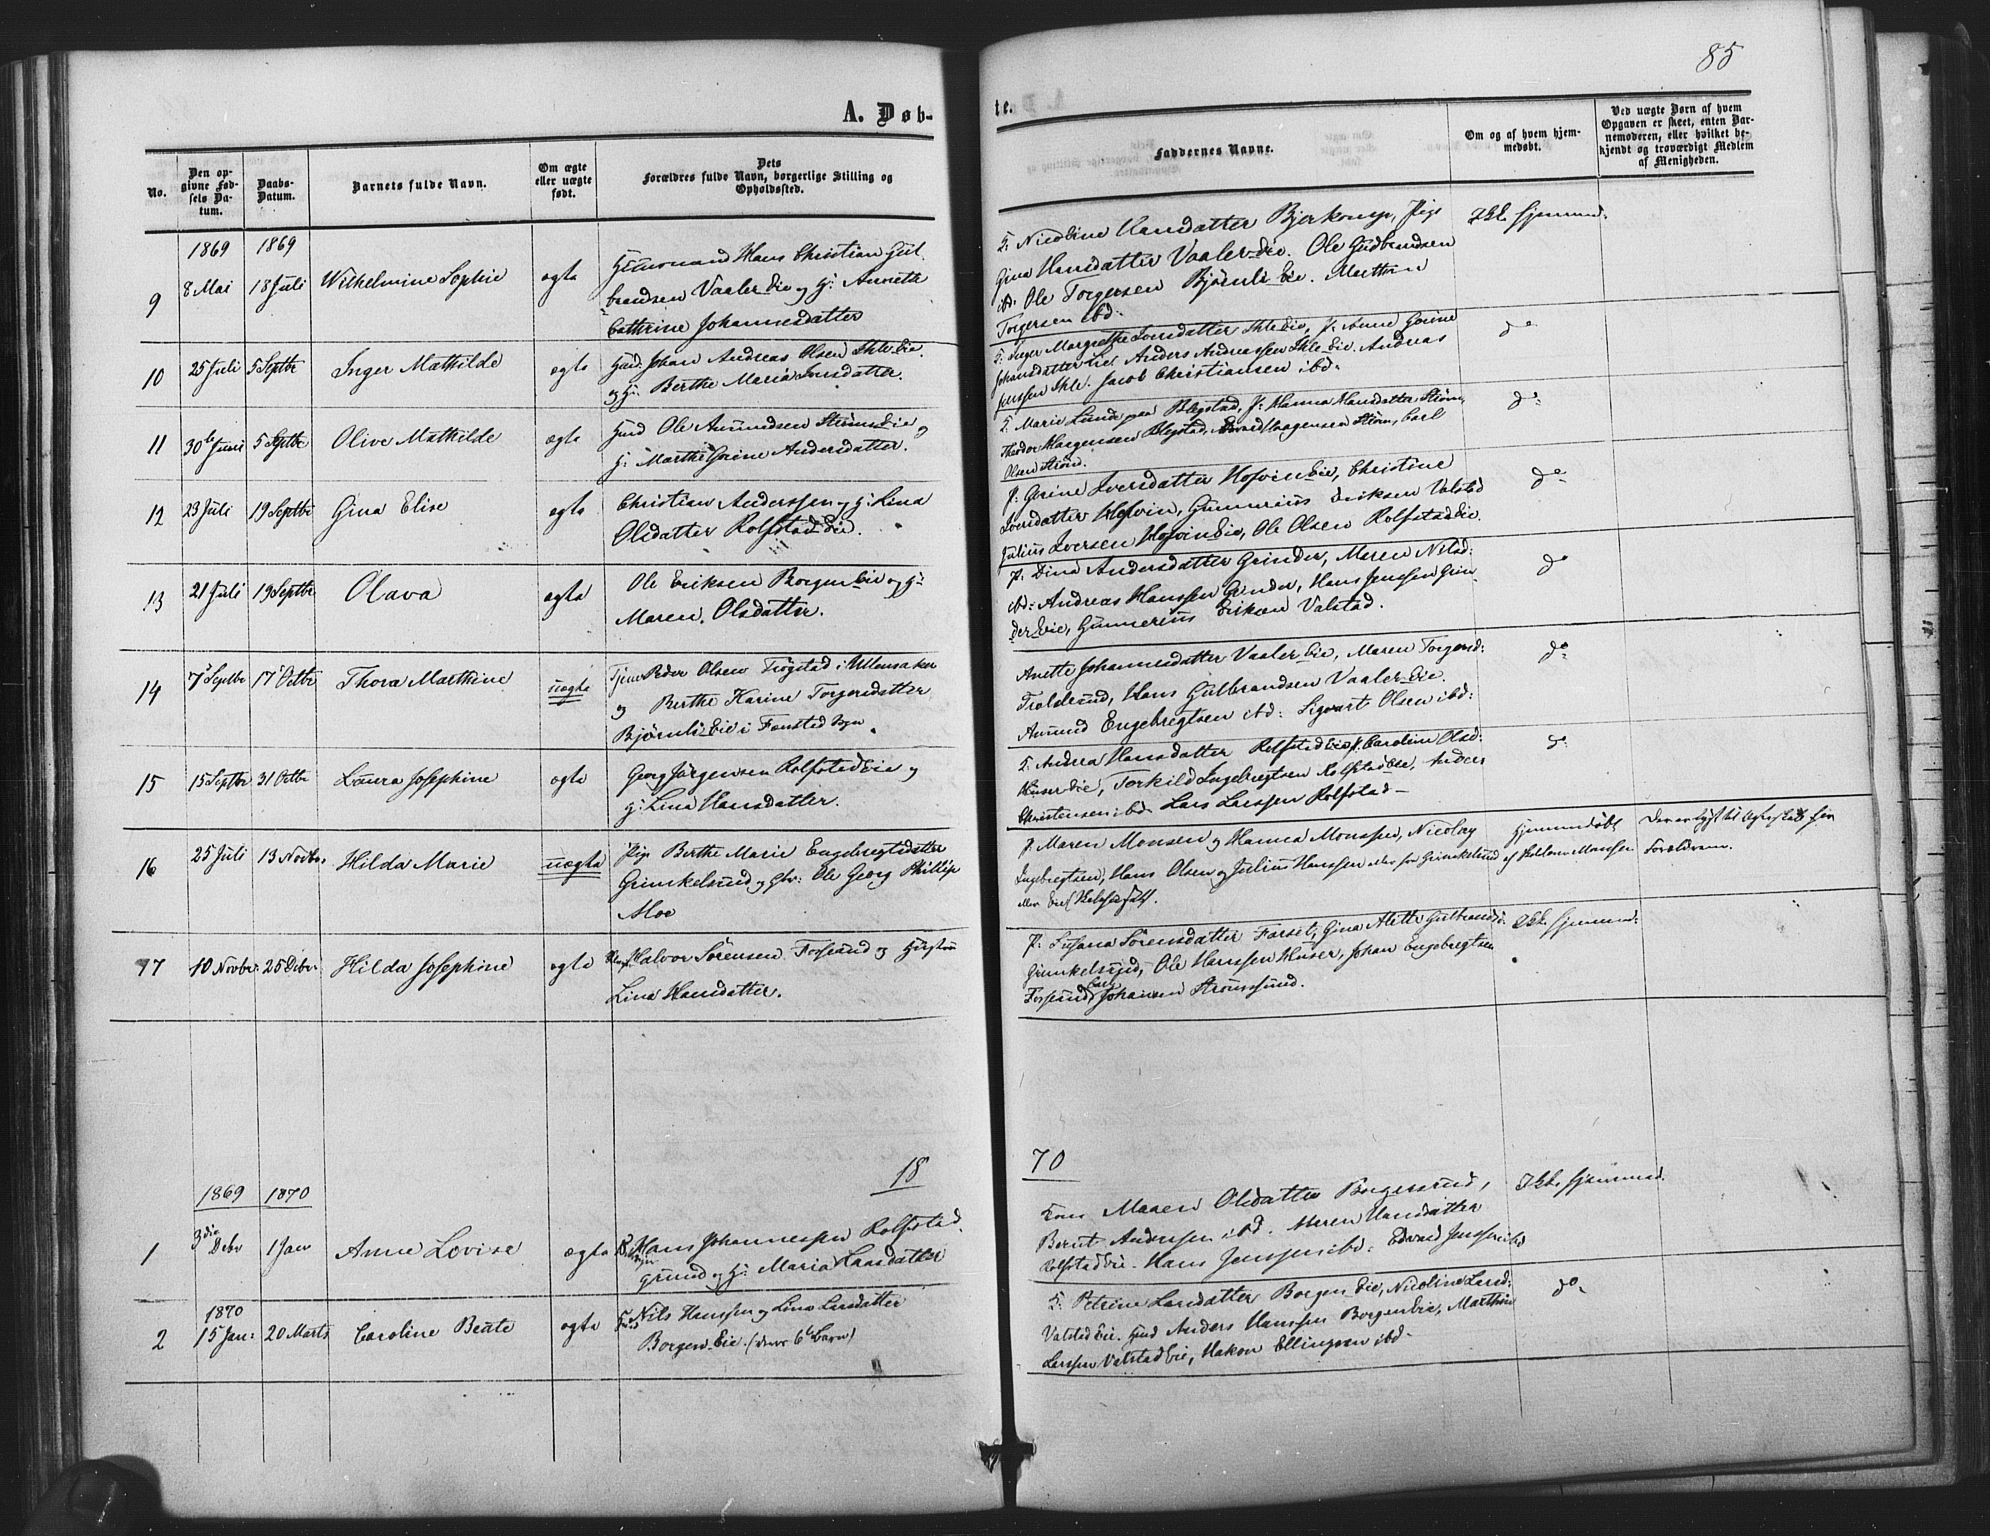 85
A. Døb-
te.
No.
Den op-
givne Fød-
sels Da-
tum.
Daabs-
Datum.
Barnets fulde Navn.
Om ægte
eller uægte
født.
Dets
Forældres fulde Navn, borgerlige Stilling og
Opholdssted.
Faddernes Navne.
Om og af hvem hjem-
medøbt.
Ved uægte Børn af hvem
Opgaven er skeet, enten Bar-
nemoderen, eller hvilket be-
kjendt og troværdigt Medlem
af Menigheden.
1869 1869
9 8 Mai 18 Juli Wilhelmine Sophie ægte
Huusmand Hans Christian Gul-
brandsen Vaaler Eie og H: Annette
Cathrine Johannesdatter
F. Nicoline Hansdatter Bjerkom, Pige
Gina Hansdatter Vaaler-Eie. Ole Gudbrandsen
ib: Ole Torgersen Bjørnli Eie. Marthin
Torgersen ibd:
Ikke hjemmed:
10 25 Juli 5 Septbr Inger Mathilde ægte
Huusm. Johan Andreas Olsen Ihle-Eie
og H: Berthe Maria Iversdatter.
F. Inger Margrethe Iversdatter Ihle Eie, P: Anne Gorine
Johansdatter Lie. Anders Andreassen Ihle-Eie. Andreas
Ihle. Jacob Christiansen ibd:
do
11 30te Juni 5 Septbr Olive Mathilde ægte
Husmd Ole Amundsen Strøms Eie og
H: Marthe Gorine Andersdatter.
F. Marie Lunde paa Blegstad, P: Hanna Hansdatter Strøm,
Theodor Haagensen Blegstad, Edvard Haagensen Strøm, Carl
Olsen Strøm.
do
12 23 Juli 19 Septbr Gina Elise ægte
Christian Anderssen og H: Lina
Olsdatter Rolfstad Eie.
P: Gorine Iversdatter Hofvin Eie, Christine
Iversdatter Hofvin, Gunnerius Eriksen Valstad
Julius Iversen Hofvin Eie, Ole Olsen Rolfstad Eie.
do
13 21 Juli 19 Septbr Olava ægte
Ole Eriksen Borgen Eie og H:
Maren Olsdatter.
P. Dina Andersdatter Grinder, Maren Nilsd:
ibd: Andreas Hanssen Grinder, Hans Jenssen Grin-
der Eie, Gunnerius Eriksen Valstad.
do
14 7 Septbr 17 Octbr Thora Marthine uægte
Tjener Peder Olsen Trøgstad i Ullensaker
og Berthe Karine Torgersdatter
Bjørnli Eie i Fensted Sogn
Anette Johannesdatter Vaaler Eie, Maren Torgersd:
Troldersud, Hans Gulbrandsen Vaaler-Eie.
Amund Engebregtsen ibd: Sigvart Olsen ibd:
do
15 15 Septbr 31 Octbr Laura Josephine ægte
Georg Jørgensen Rolfstad Eie og
H: Lina Hansdatter.
F. Andrea Hansdatter Rolfstad Eie, P. Caroline Olsd:
Huser Eie, Torkild Ingebregtsen Rolfstad Eie, Anders
Christensen ibd. Lars Larssen Rolfstad-
do
16 25 Juli 13 Novbr Hilda Marie uægte
Pige Berthe Marie Engebregtsdatter
Grinkelsrud og Gbr: Ole Georg Phillip
Moe
P: Maren Monsen og Hanna Monssen, Nicolay
Ingebregtsen, Hans Olsen og Julius Hanssen alle fra Grinkelsrud
Hjemmedøbt
af Monsen
Forældrene.
17 10 Novbr: 25 Decbr: Hilda Josephine ægte
Halvor Sørensen Fosserud og Hustru
Lina Hansdatter.
P: Susana Sørensdatter Farset, Gina Alette Gulbrandsd.
Grinkelsrud, Ole Hanssen Huser, Johan Engebregtsen
Fosserud, Johansen Strømsrud.
Ikke hjemmed:
18 70
1869 1870
1 3die Decbr 1 Jan Anne Lovise ægte
Hans Johannessen Rolfstad
grund og H: Maria Larsdatter
Kone Maren Olsdatter Borgersrud,
Bernt Andersen ibd. Maren Hansdatter
Rolfstad Eie. Hans Jenssen ibd: Edvard Jenssen ibd
Ikke hjemmed.
1870
2 15 Jan: 20 Marts Caroline Beate ægte
Nils Hanssen og Lina Larsdatter
Borgen Eie. (deres 6te Barn)
F. Petrine Larsdatter Borgen Eie, Nicoline Larsd:
Valstad Eie. Husmd Anders Hanssen Borgen Eie, Marthin
Larssen Valstad Eie, Hakon Ellingsen ibd.
do